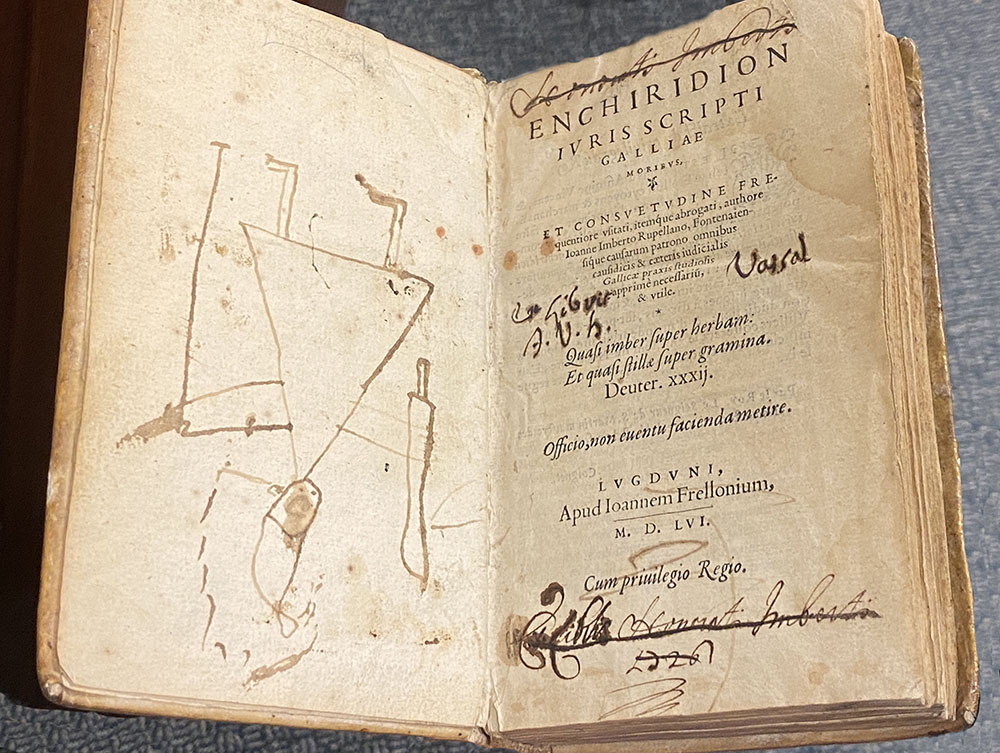 Honorati Imberti
ENCHIRIDION
IVRIS SCRIPTI
GALLIAE
MORIBVS,
ET CONSVETVDINE FRE-
quentiore vsitati, itemque abrogati, authore
Ioanne Imberto Rupellano, Fontenaien-
sique causarum patrono omnibus
causidicis & cæteris iudicialis
Gallicæ praxis studiosis
apprimè necessariũ,
& vtile.
Vassal
A. V. h.
Quasi imber super herbam:
Et quasi stillæ super gramina.
Deuter. xxxij.
Officio, non euentu facienda metire.
LVGDVNI,
Apud Ioannem Frellonium,
M. D. LVI.
Cum priuilegio Regio.
Ex libris Honorati Imberti